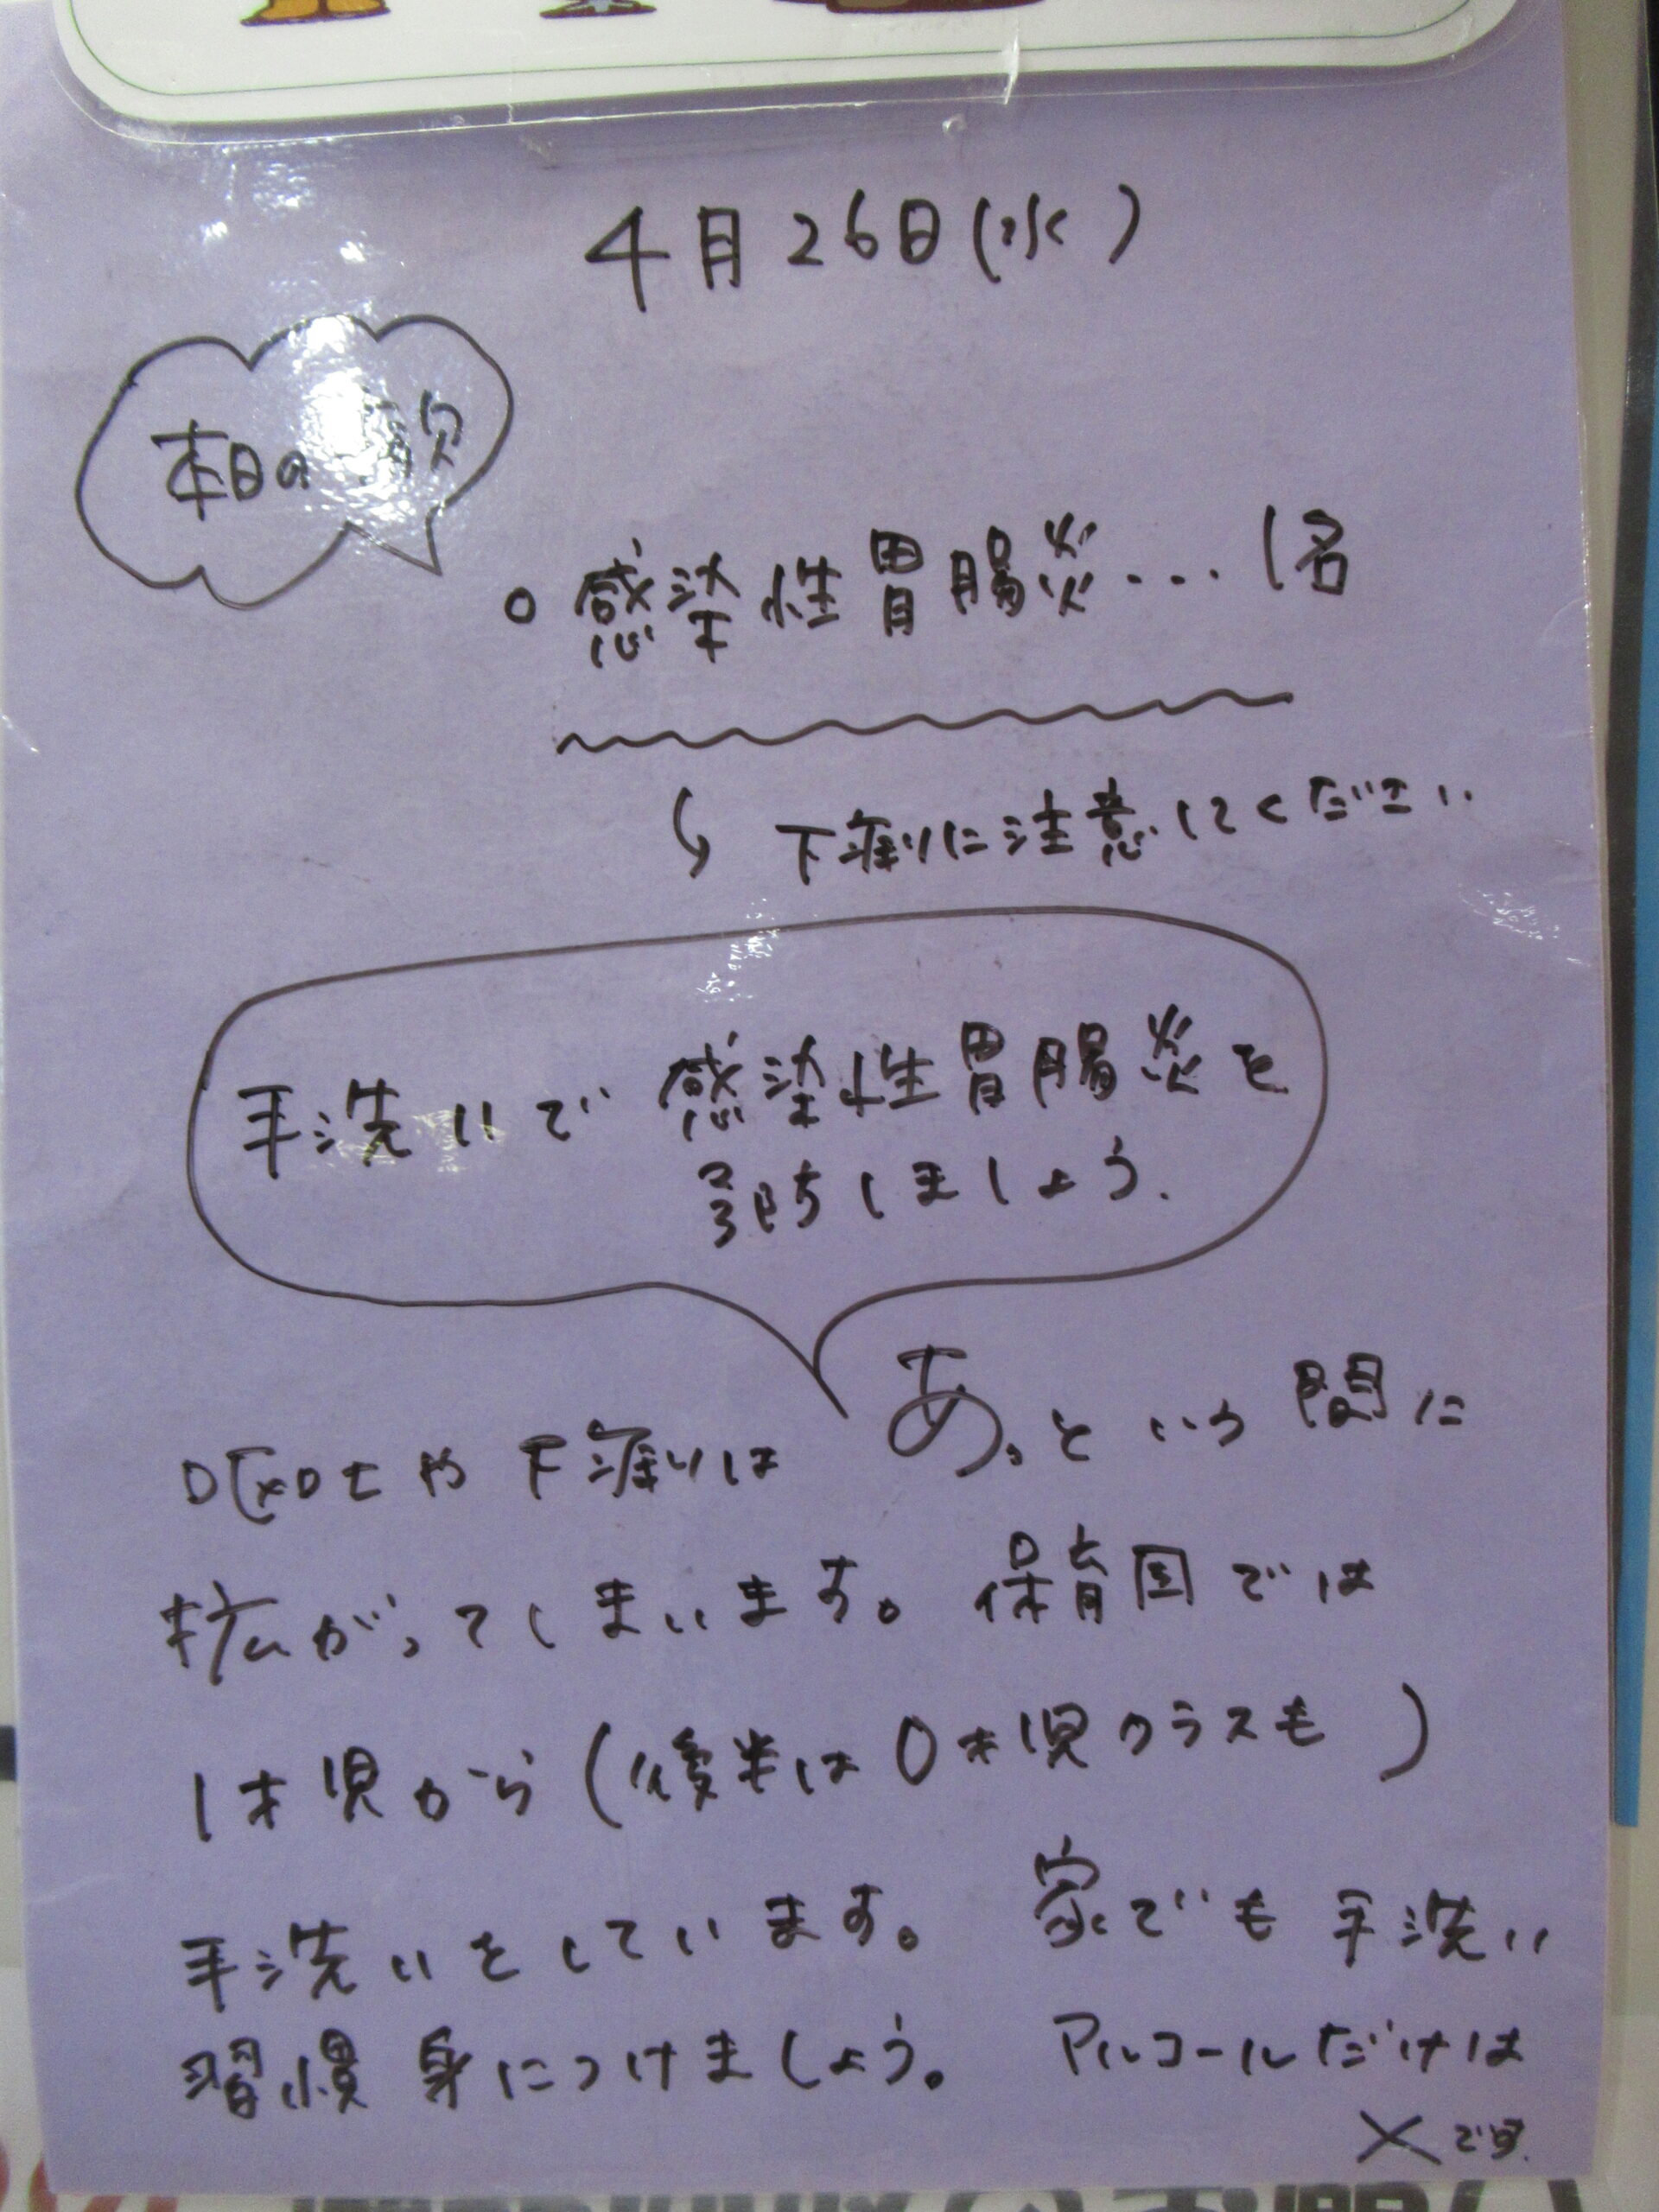 4月26日(水)
本日の 欠
○ 感染性胃腸炎… 1名
↳ 下痢に注意してください
手洗いで 感染性胃腸炎を
予防しましょう.
嘔吐や下痢は あっという間に
拡がってしまいます。保育園では
1才児から(後半は0才児クラスも)
手洗いをしています。 家でも手洗い
習慣 身につけましょう。 アルコールだけは
×です.